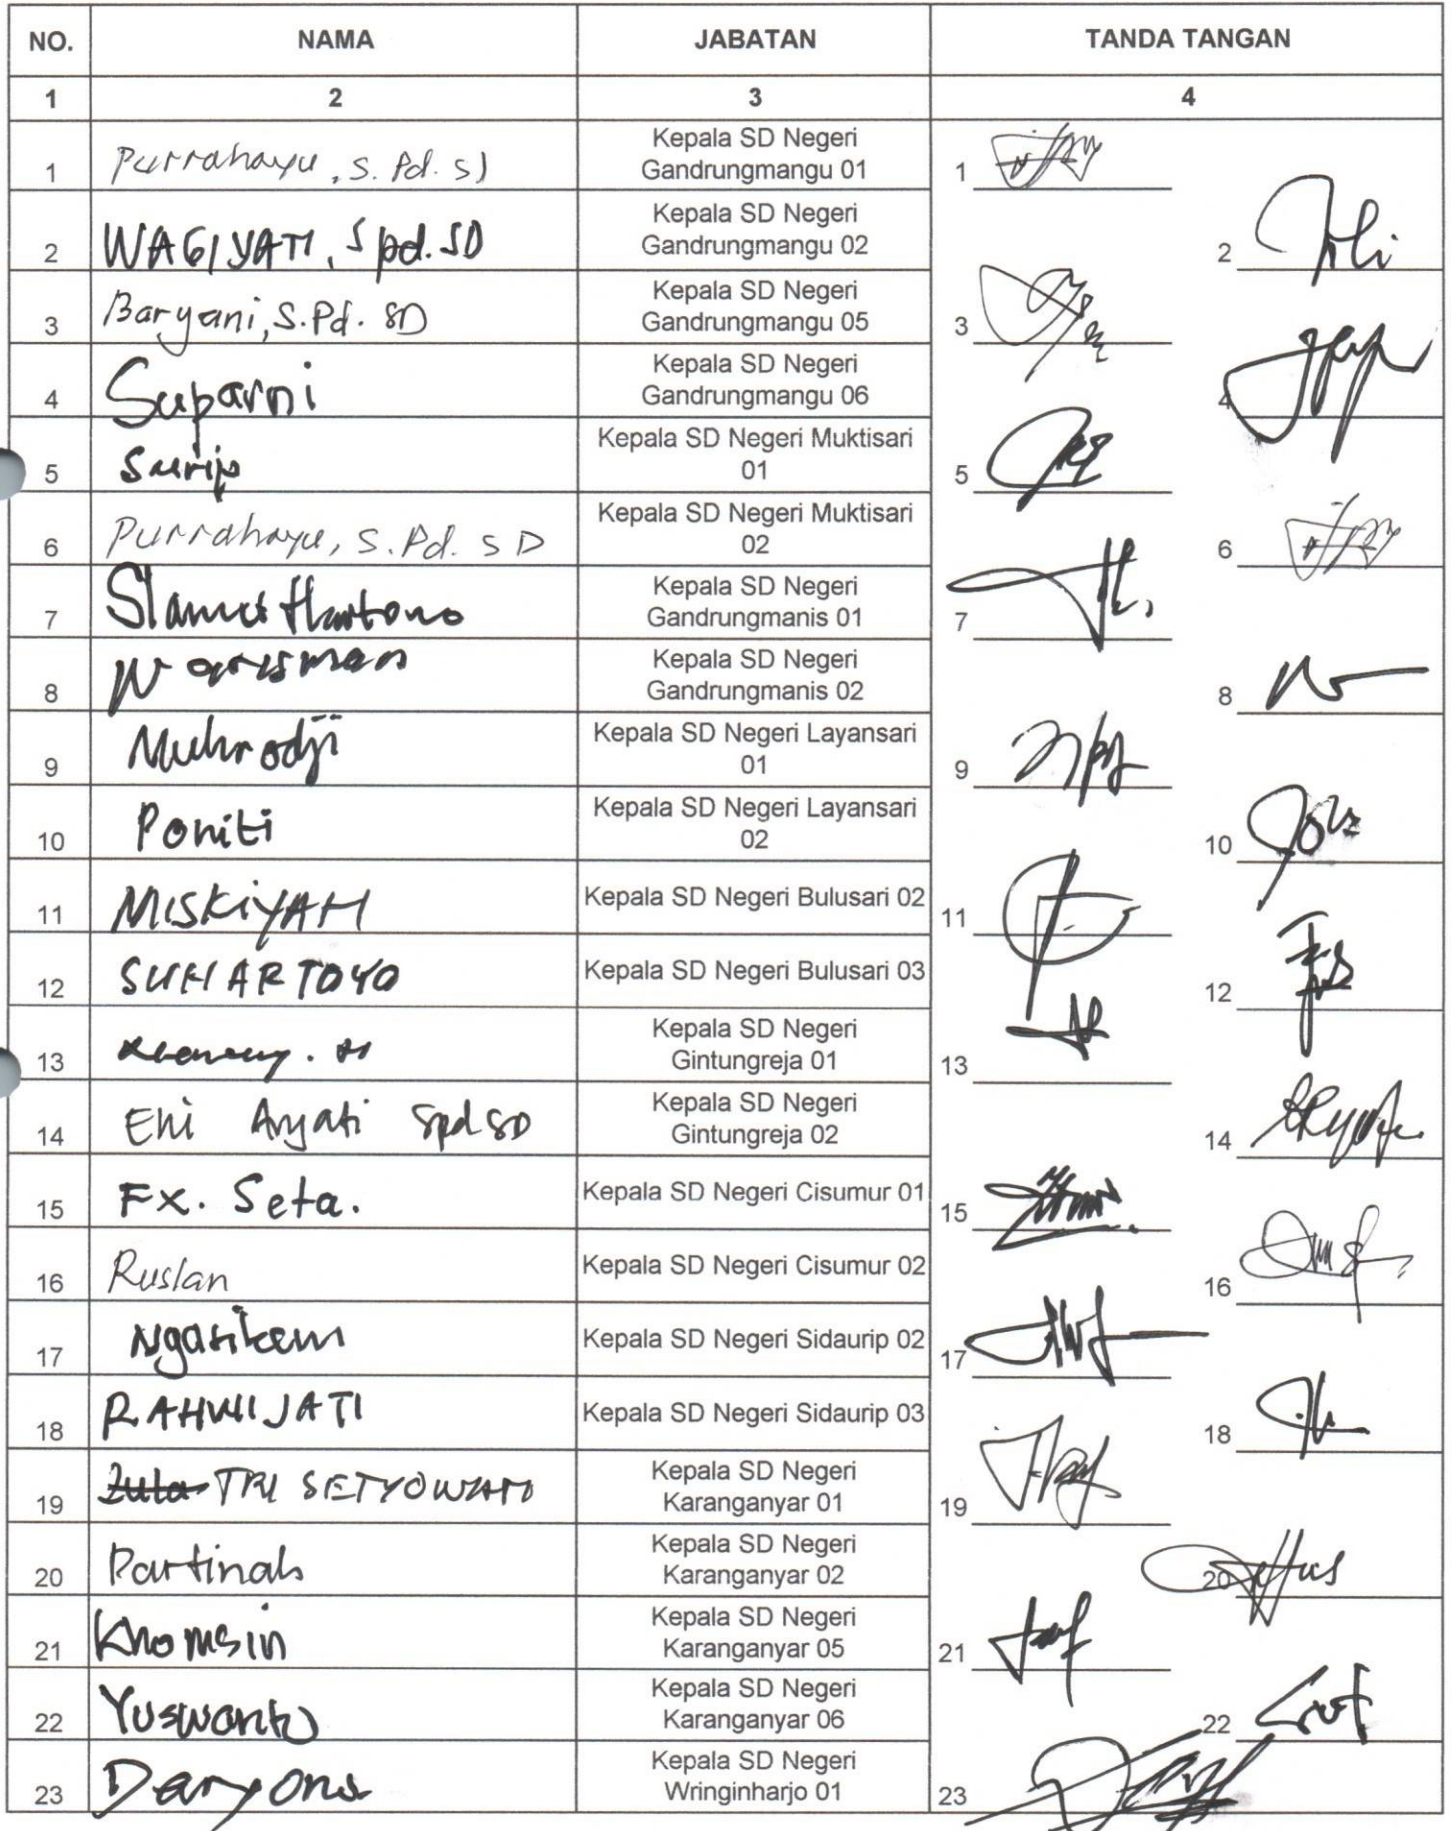 NO. NAMA JABATAN TANDA TANGAN
1 2 3 4
1 Purrahayu, S.Pd.SD Kepala SD Negeri Gandrungmangu 01 1
2 WAGIYATI, Spd.SD Kepala SD Negeri Gandrungmangu 02 2
3 Baryani, S.Pd.SD Kepala SD Negeri Gandrungmangu 05 3
4 Suparni Kepala SD Negeri Gandrungmangu 06 4
5 Surip Kepala SD Negeri Muktisari 01 5
6 Purrahayu, S.Pd.SD Kepala SD Negeri Muktisari 02 6
7 Slamet Hartono Kepala SD Negeri Gandrungmanis 01 7
8 Warisman Kepala SD Negeri Gandrungmanis 02 8
9 Muhrodji Kepala SD Negeri Layansari 01 9
10 Poniti Kepala SD Negeri Layansari 02 10
11 MISKIYAH Kepala SD Negeri Bulusari 02 11
12 SUHARTOYO Kepala SD Negeri Bulusari 03 12
13 Kepala SD Negeri Gintungreja 01 13
14 Eni Aryati Spd SD Kepala SD Negeri Gintungreja 02 14
15 Fx. Seta. Kepala SD Negeri Cisumur 01 15
16 Ruslan Kepala SD Negeri Cisumur 02 16
17 Ngatikem Kepala SD Negeri Sidaurip 02 17
18 RAHWIJATI Kepala SD Negeri Sidaurip 03 18
19 TRI SETYOWATI Kepala SD Negeri Karanganyar 01 19
20 Partinah Kepala SD Negeri Karanganyar 02 20
21 Khomsin Kepala SD Negeri Karanganyar 05 21
22 Yuswanto Kepala SD Negeri Karanganyar 06 22
23 Daryono Kepala SD Negeri Wringinharjo 01 23